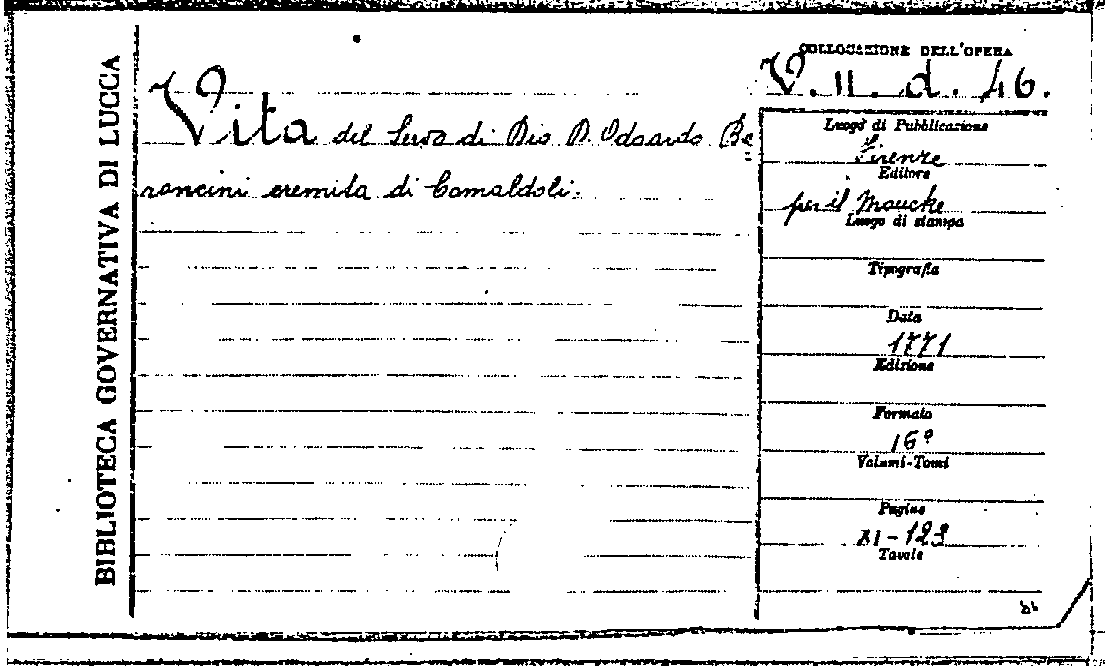 BIBLIOTECA GOVERNATIVA DI LUCCA
Vita del Servo di Dio D. Odoardo Ba=
roncini eremita di Camaldoli.
COLLOCAZIONE DELL'OPERA
V. II. d. 46.
Luogo di Pubblicazione
Firenze
Editore
per il Moucke
Luogo di stampa
Tipografia
Data
1771
Edizione
Formato
16º
Volumi-Tomi
Pagine
XI-123
Tavole